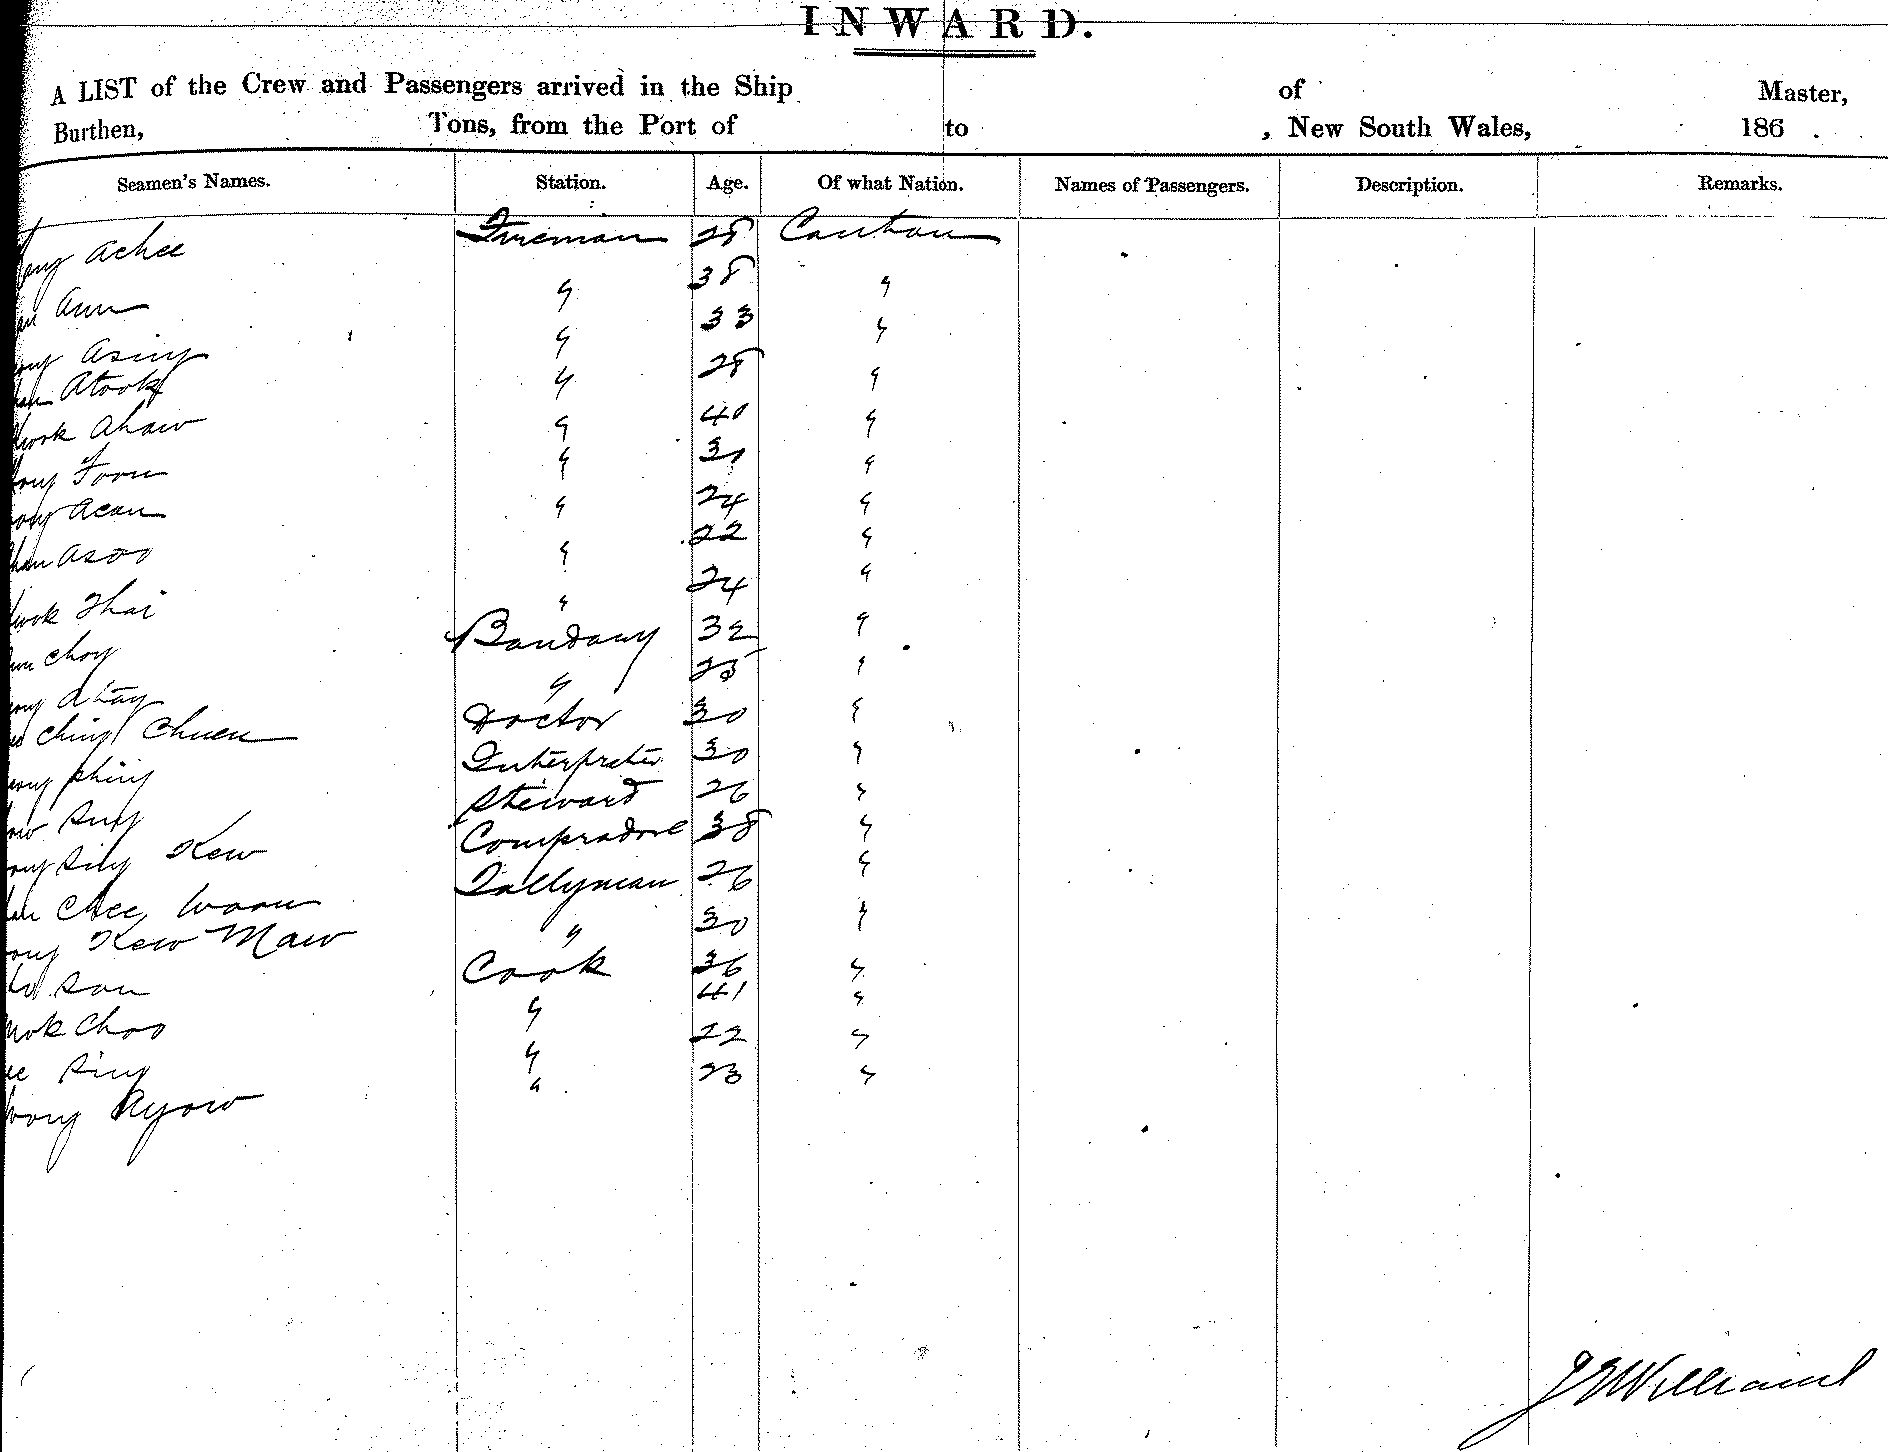 INWARD.
A LIST of the Crew and Passengers arrived in the Ship of Master,
Burthen, Tons, from the Port of to , New South Wales, 186 .
Seamen's Names. Station. Age. Of what Nation. Names of Passengers. Description. Remarks.
Achee Fireman 28 Canton
Ann " 38 "
Asing " 33 "
Atook " 28 "
Ahaw " 40 "
Foon " 31 "
Acan " 24 "
Asoo " 22 "
Thai " 24 "
Choy Bandary 32 "
Ahay " 25 "
Ching Chuen Doctor 30 "
Phing Interpreter 30 "
Sing Steward 26 "
Sing Kew Compradore 38 "
Chee Woon Tallyman 26 "
Kew Maw " 30 "
Son Cook 36 "
Choo " 41 "
Sing " 22 "
Ayow " 23 "
Williams